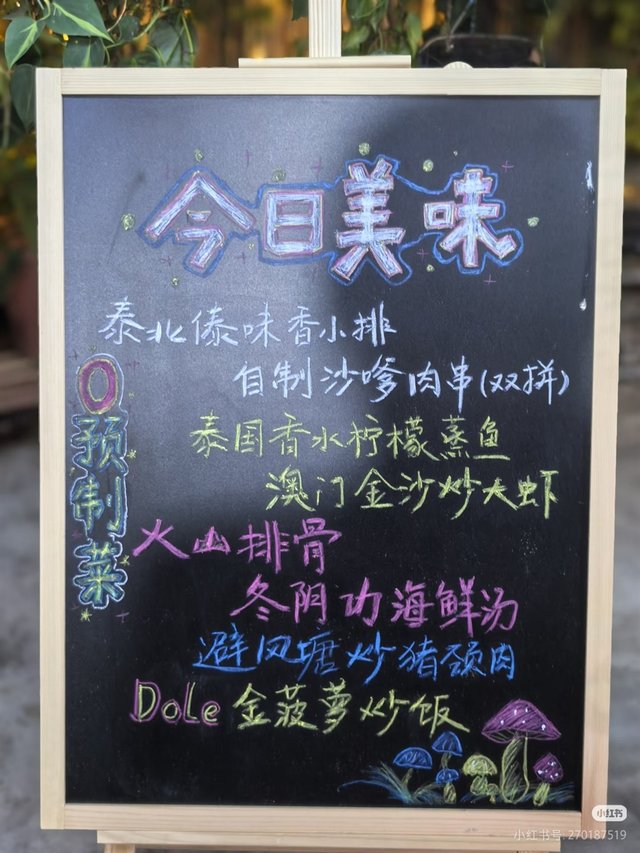 今日美味
泰北傣味香小排
自制沙嗲肉串(双拼)
泰国香水柠檬蒸鱼
澳门金沙炒大虾
火山排骨
冬阴功海鲜汤
避风塘炒猪颈肉
Dole金菠萝炒饭
0预制菜
小红书
小红书号: 270187519